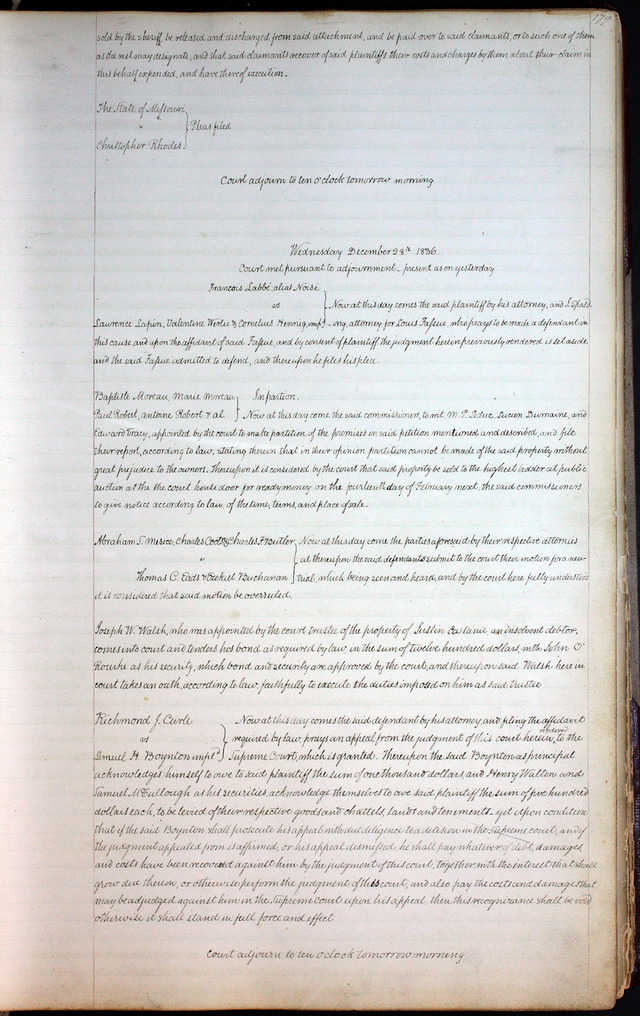 179
sold by the sheriff be released and discharged from said attachment, and be paid over to said claimants, or to such one of them
as the rest may designate, and that said claimants recover of said plaintiffs their costs and charges by them about their claim in
this behalf expended, and have thereof execution.
The State of Missouri
"
Christopher Rhodes
Pleas filed
Court adjourn to ten o'clock tomorrow morning
Wednesday December 28th 1836.
Court met pursuant to adjournment - present as on yesterday
Francois Labbé, alias Noisé
vs
Now at this day comes the said plaintiff by his attorney, and J. Spald
Laurence Lapin, Valentine & Cornelius impd
-ing, attorney for Louis Fassue, who prays to be made a defendant in
this cause and upon the affidavit of said Fassue, and by consent of plaintiff the judgment herein previously rendered is set aside
and the said Fassue admitted to defend, and thereupon he files his plea
Baptiste Moreau, Marie Moreau
In partion.
Paul Robert, antoine Robert & al
Now at this day come the said commissioners, to wit, M. P. Leduc, Lucien Dumaine, and
Edward Tracy, appointed by the court to make partition of the premises in said petition mentioned and described, and file
their report, according to law, stating therein that in their opinion partition cannot be made of the said property without
great prejudice to the owners. Thereupon it is considered by the court that said property be sold to the highest bidder at public
auction at the the court house door for ready money on the day of February next, the said commissioners
to give notice according to law, of the time, terms, and place of sale.
Abraham S. Charles & Charles P Butler
Now at this day come the parties aforesaid by their respective attornies
"
at thereupon the said defendants submit to the court their motion for a new
Thomas C. Eads & Ezekiel Buchanan
trial, which being seen and heard, and by the court here fully understood
it is considered that said motion be overruled.
Joseph W. Walsh, who was appointed by the court trustee of the property of an insolvent debtor,
comes into court and tenders his bond as required by law, in the sum of twelve hundred dollars, with John O'
Rourke as his security, which bond and security are approved by the court, and thereupon said Walsh here in
court takes an oath, according to law, faithfully to execute the duties imposed on him as said trustee
Richmond J. Curle
Now at this day comes the said defendant by his attorney, and filing the affidavit
vs
required by law, prays an appeal from the judgment of this court herein rendered, to the
Lemuel H Boynton impld
Supreme Court, which is granted. Thereupon the said Boynton as principal
acknowledges himself to owe to said plaintiff the sum of one thousand dollars, and Henry Walton and
Samuel McCullough as his securities, acknowledge themselves to owe said plaintiff the sum of five hundred
dollars each, to be levied of their respective goods and chattels, lands and tenements. yet upon condition
that if the said Boynton shall prosecute his appeal with due diligence to a decision in the Supreme court, and if
the judgment appealed from is affirmed, or his appeal dismissed, he shall pay whatever of debt, damages,
and costs have been recovered against him by the judgment of this court, together with the interest that shall
grow due thereon, or otherwise perform the judgment of this court, and also pay the costs and damages that
may be adjudged against him in the Supreme Court upon his appeal, then this recognizance shall be void
otherwise it shall stand in full force and effect
Court adjourn to ten o'clock tomorrow morning